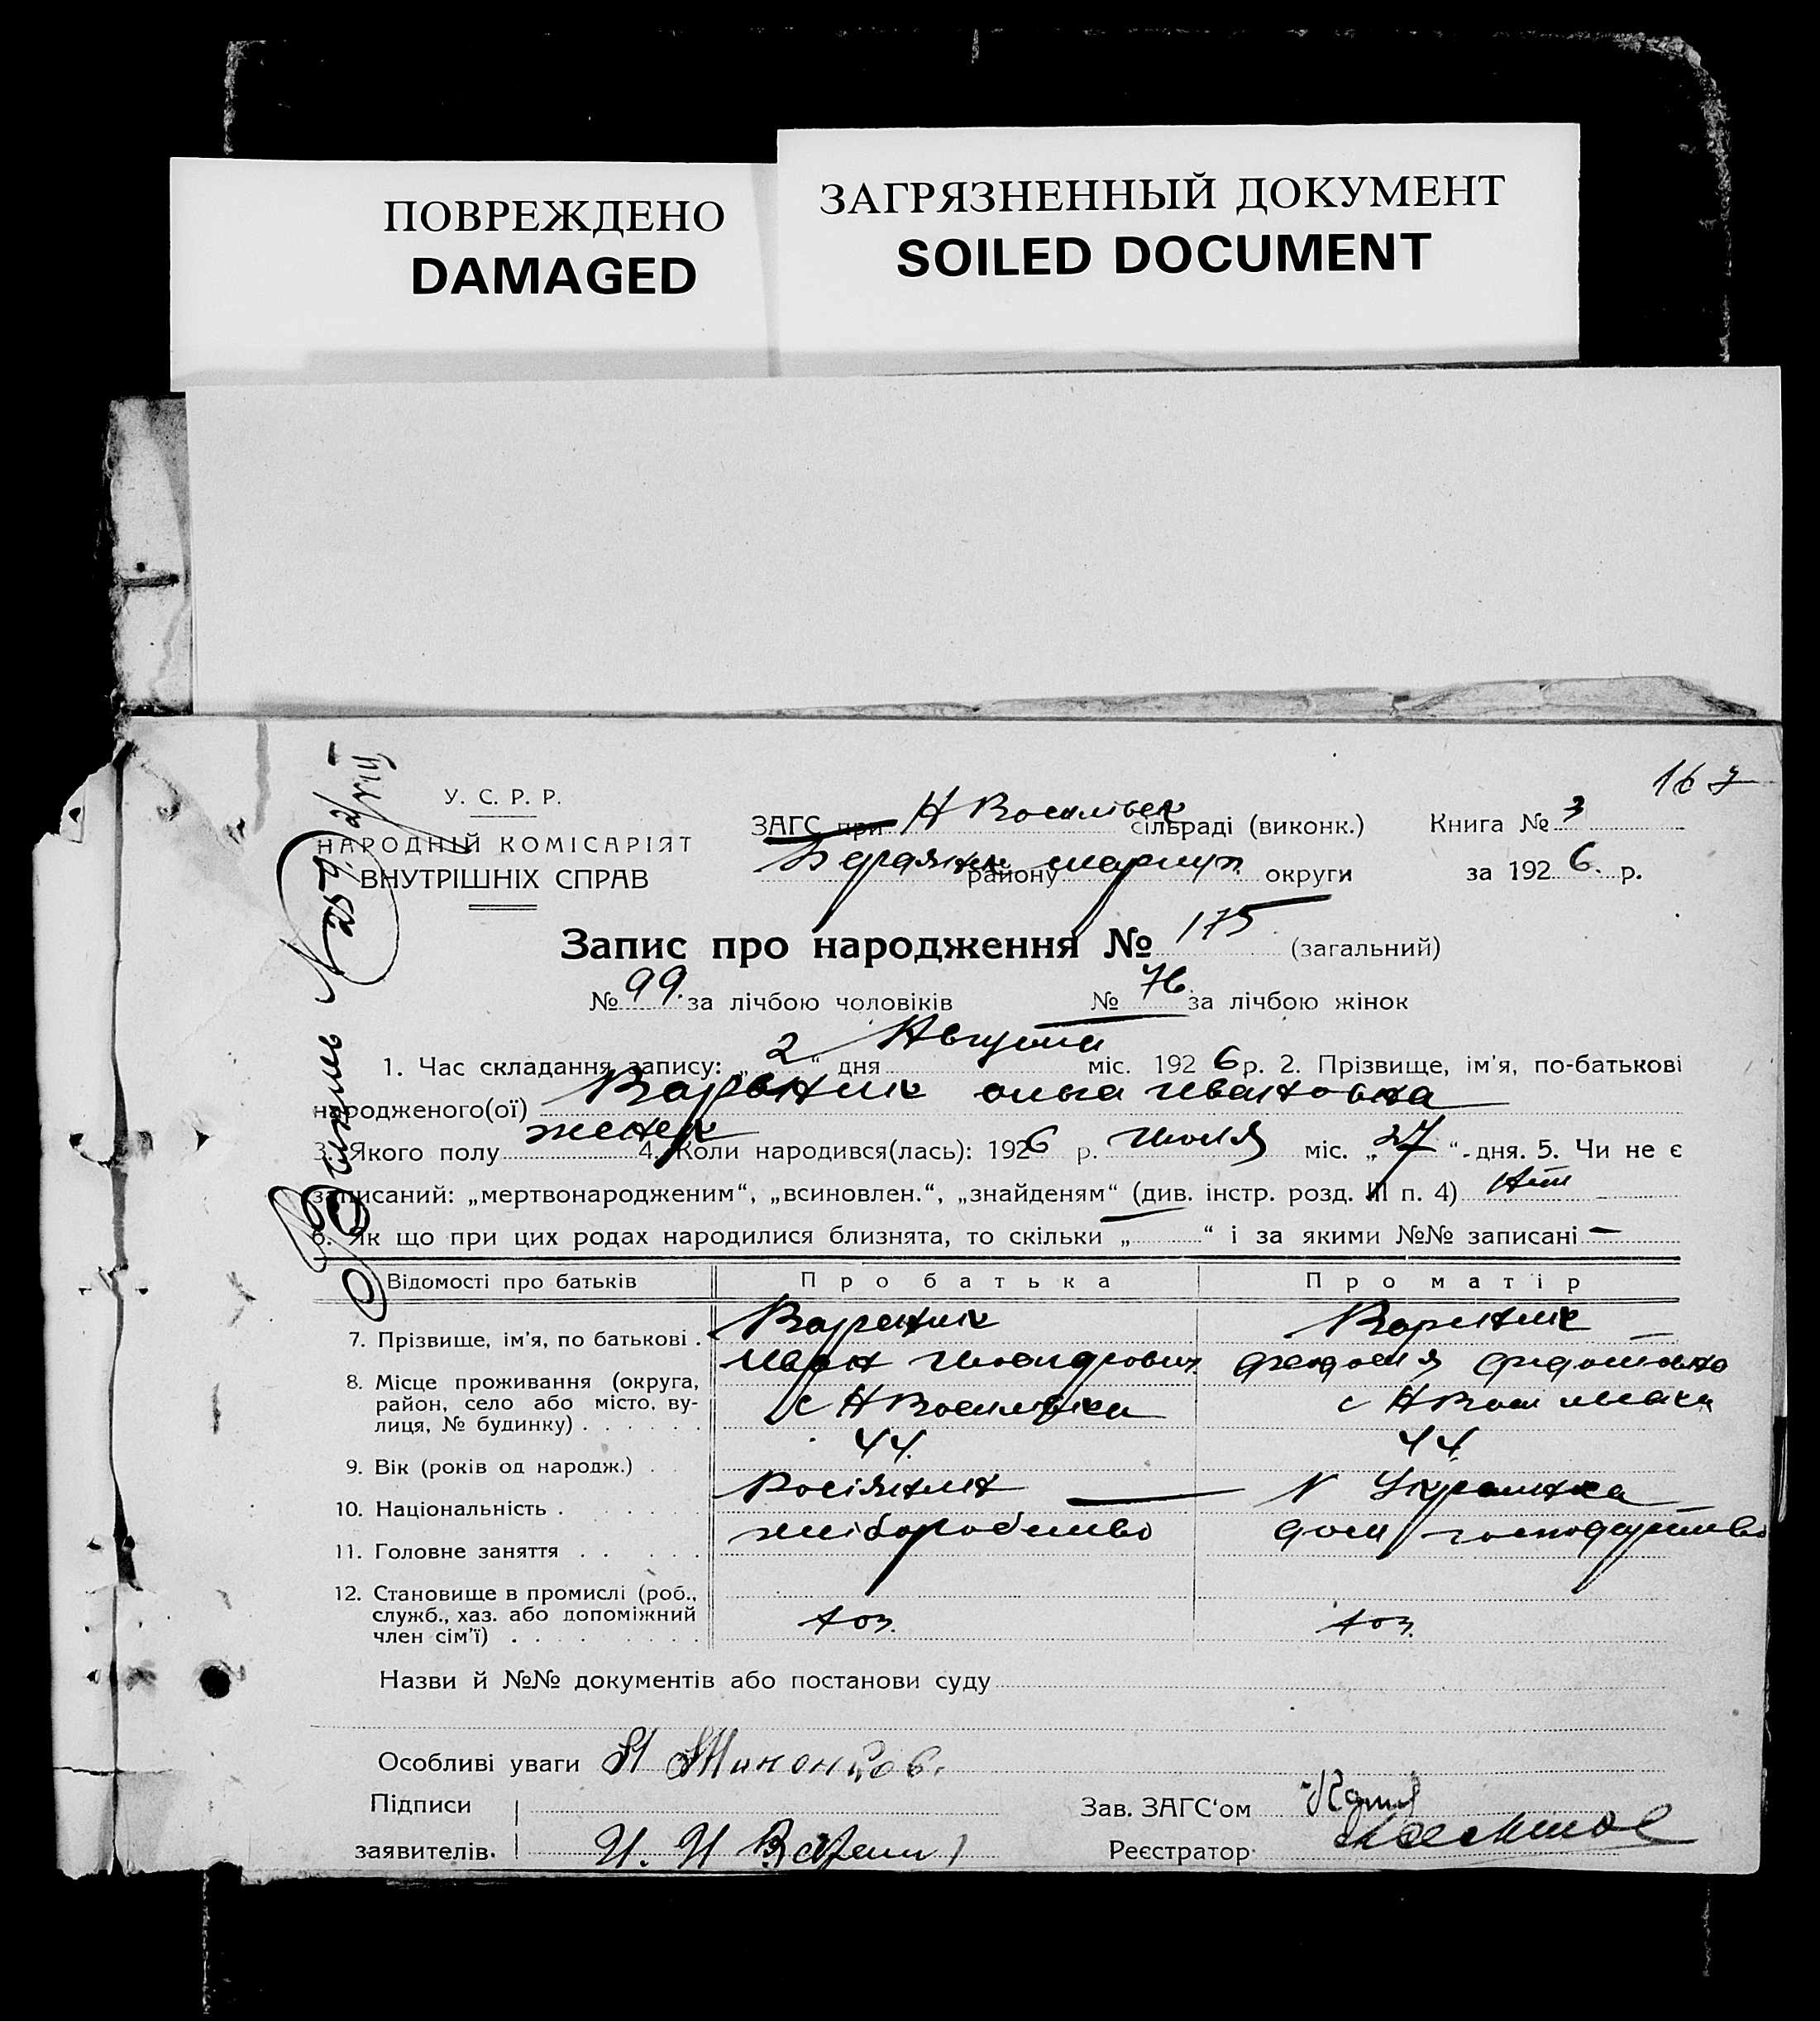 ПОВРЕЖДЕНО
DAMAGED
ЗАГРЯЗНЕННЫЙ ДОКУМЕНТ
SOILED DOCUMENT
167
У. С. Р. Р.
НАРОДНІЙ КОМІСАРІЯТ
ВНУТРІШНІХ СПРАВ
ЗАГС при Н Васильев сільраді (виконк.) Книга № 3
Бердянк района мариуп. округи за 1926 р.
Запис про народження № 175 (загальний)
№ 99. за лічбою чоловіків № 76. за лічбою жінок
1. Час складання запису: „2“ дня Августа міс. 1926 р. 2. Прізвище, ім'я, по-батькові
народженого(ої) Вареник Ольга Ивановна
3. Якого полу женск 4. Коли народився(лась): 1926 р. Июля міс. „27“ дня. 5. Чи не є
записаний: „мертвонародженим“, „всиновлен.“, „знайденям“ (див. інстр. розд. III п. 4) Нет
6. Як що при цих родах народилися близнята, то скільки „ “ і за якими №№ записані —
Відомості про батьків Про батька Про матір
7. Прізвище, ім'я, по батькові . Вареник Вареник
Иван
8. Місце проживання (округа, район, село або місто, вулиця, № будинку) . . . . . . с Н Васильевка с Н Васильевка
9. Вік (років од народж.) . . 44. 44
10. Національність . . . . Росіянин Українка
11. Головне заняття . . . . . хліборобство дом господарство
12. Становище в промислі (роб., служб., хаз. або допоміжний член сім'ї) . . . . . . . хоз. хоз.
Назви й №№ документів або постанови суду
Особливі уваги
Підписи заявителів. И. И Варени
Зав. ЗАГС'ом
Реєстратор